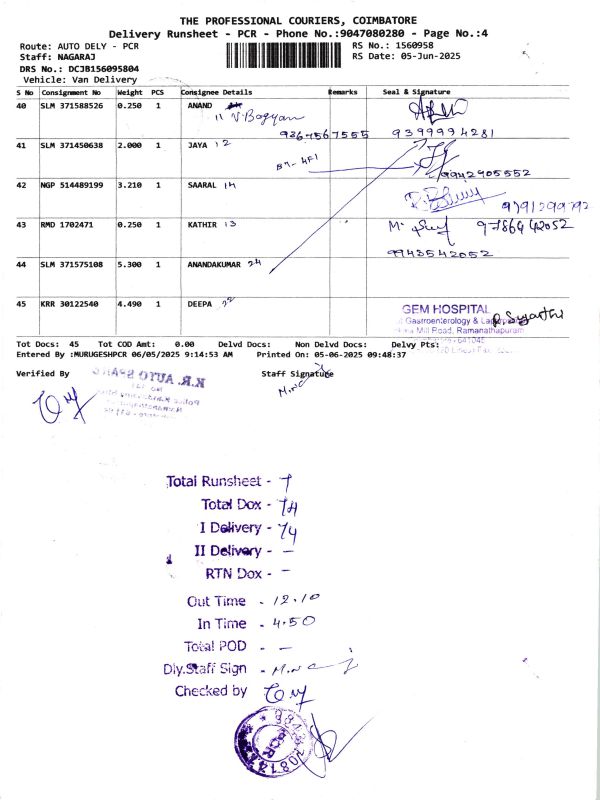 THE PROFESSIONAL COURIERS, COIMBATORE
Delivery Runsheet - PCR - Phone No.:9047080280 - Page No.:4
Route: AUTO DELY - PCR
RS No.: 1560958
Staff: NAGARAJ
RS Date: 05-Jun-2025
DRS No.: DCJB156095804
Vehicle: Van Delivery
S No Consignment No Weight PCS Consignee Details Remarks Seal & Signature
40 SLM 371588526 0.250 1 ANAND
11 V. Bagyan
9367567555 9399994281
41 SLM 371450638 2.000 1 JAYA 12
9942905552
42 NGP 514489199 3.210 1 SAARAL 14
9791299792
43 RMD 1702471 0.250 1 KATHIR 13
9786442052
9943542052
44 SLM 371575108 5.300 1 ANANDAKUMAR 24
45 KRR 30122540 4.490 1 DEEPA 22
GEM HOSPITAL
Gastroenterology &
Mill Road, Ramanathapuram
641045
Tot Docs: 45 Tot COD Amt: 0.00 Delvd Docs: Non Delvd Docs: Delvy Pts:
Entered By :MURUGESHPCR 06/05/2025 9:14:53 AM Printed On: 05-06-2025 09:48:37
Verified By Staff Signature
K.R. AUTO SPARES
Total Runsheet - 7
Total Dox - 74
I Delivery - 74
II Delivery - -
RTN Dox - -
Out Time - 12.10
In Time - 4.50
Total POD - -
Dly.Staff Sign -
Checked by
PCR